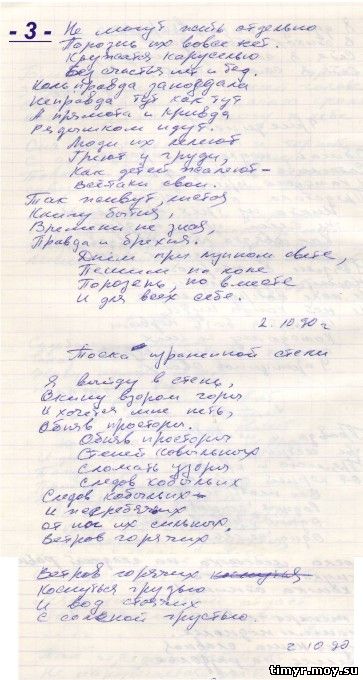 - 3 -
Не могут жить отдельно
Порознь их вовсе нет.
Кружатся каруселью
Без счастья нет и бед.
Коль правда запоздала
Неправда тут как тут
А прямота и кривда
Рядышком идут.
Люди их лелеют
Греют у груди,
Как детей жалеют –
Всё-таки свои.
Так живут, листая
Книгу бытия,
Времени не зная,
Правда и брехня.
Днём при лунном свете,
Пешим на коне
Порознь, но вместе
И для всех себе.
2.10.90 г
Тоска израненной степи
Я выйду в степь,
Вскину взором горы
И хочется мне петь,
Обняв просторы.
Обняв просторы
Степей ковыльных
Сломать узоры
Следов кобыльих
Следов кобыльих
И жеребячих
от ног их сильных,
Ветров горячих
Ветров горячих коснуться
Коснуться грудью
И вод стоячих
С солёной грустью.
2.10.90
timyr.moy.su